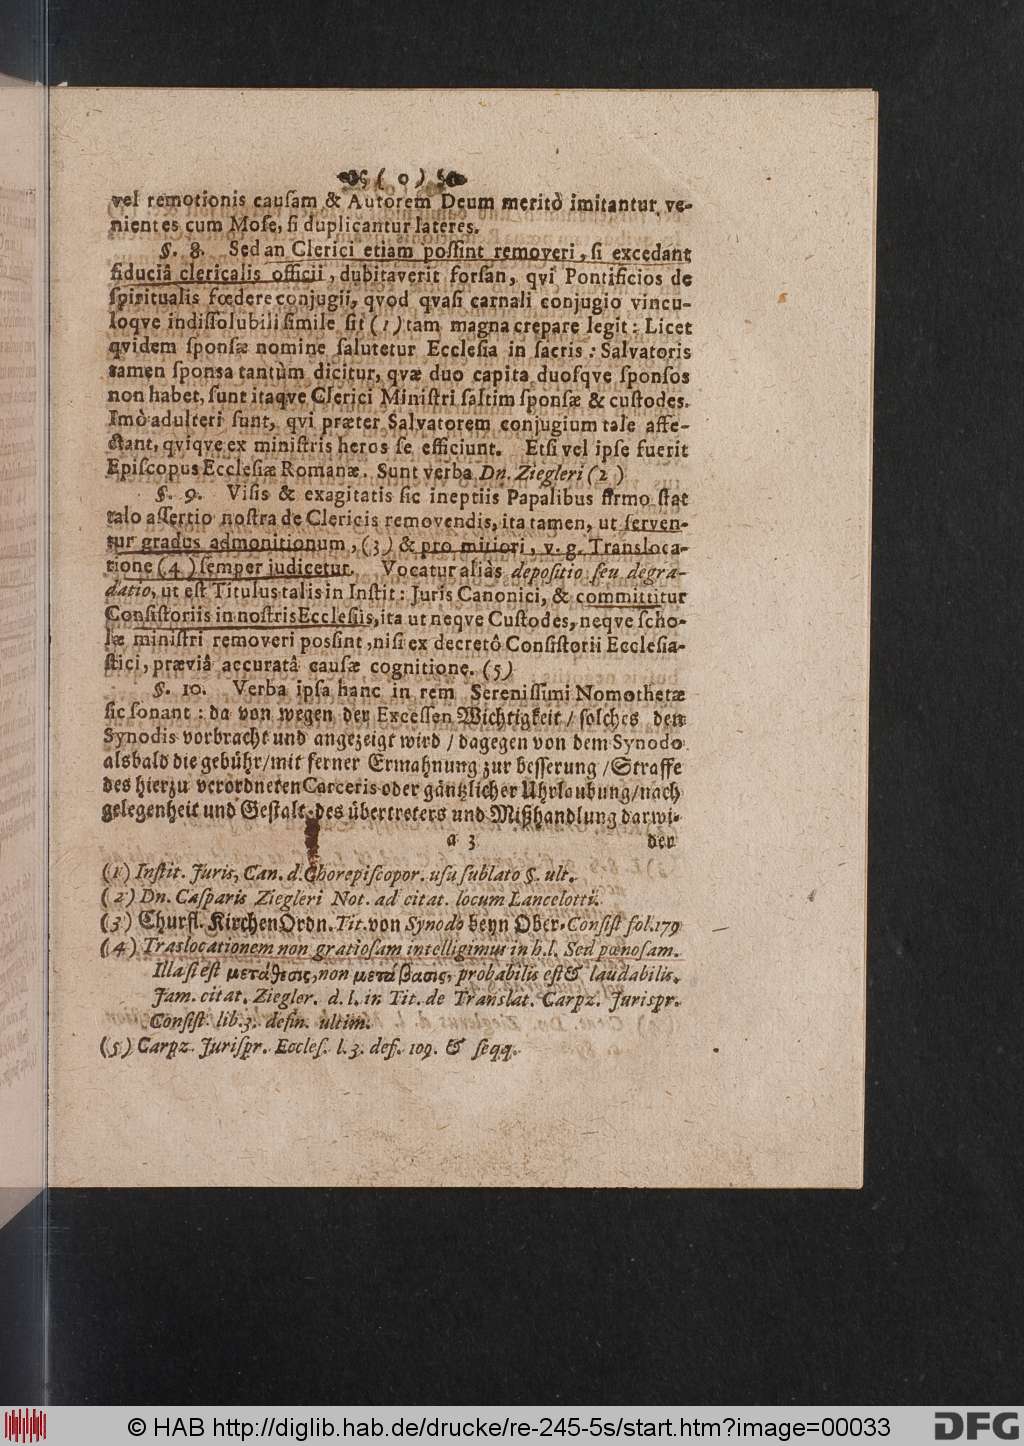 ( o )
vel remotionis cauſam & Autorem Deum meritò imitantur, ve-
nientes cum Moſe, ſi duplicantur lateres.
§. 8. Sed an Clerici etiam poſſint removeri, ſi excedant
fiduciâ clericalis officii, dubitaverit forſan, qvi Pontificios de
ſpiritualis fœdere conjugii, qvod qvaſi carnali conjugio vincu-
loqve indiſſolubili ſimile ſit (1) tam magna crepare legit: Licet
qvidem ſponſæ nomine ſalutetur Eccleſia in ſacris: Salvatoris
tamen ſponsa tantùm dicitur, qvæ duo capita duoſqve ſponſos
non habet, ſunt itaqve Clerici Miniſtri ſaltim ſponſæ & cuſtodes.
Imò adulteri ſunt, qvi præter Salvatorem conjugium tale affe-
ctant, qviqve ex miniſtris heros ſe efficiunt. Etſi vel ipſe fuerit
Epiſcopus Eccleſiæ Romanæ. Sunt verba Dn. Ziegleri (2)
§. 9. Viſis & exagitatis ſic ineptiis Papalibus firmo ſtat
talo aſſertio noſtra de Clericis removendis, ita tamen, ut ſerven-
tur gradus admonitionum, (3) & pro mitiori, v. g. Transloca-
tione (4) ſemper judicetur. Vocatur aliàs depoſitio ſeu degra-
datio, ut eſt Titulus talis in Inſtit: Juris Canonici, & committitur
Conſiſtoriis in noſtris Eccleſiis, ita ut neqve Cuſtodes, neqve ſcho-
læ miniſtri removeri posſint, niſi ex decretô Conſiſtorii Eccleſia-
ſtici, præviâ accuratâ cauſæ cognitione. (5)
§. 10. Verba ipſa hanc in rem Sereniſſimi Nomothetæ
ſic ſonant: da von wegen der Exceſſen Wichtigkeit / ſolches den
Synodis vorbracht und angezeigt wird / dagegen von dem Synodo
alsbald die gebühr/mit ferner Ermahnung zur beſſerung /Straffe
des hierzu verordneten Carceris oder gäntzlicher Uhrlaubung/nach
gelegenheit und Geſtalt des übertreters und Mißhandlung darwi-
a 3 der
(1) Inſtit. Juris, Can. d. Chorepiſcopor. uſu ſublato §. ult.
(2) Dn. Caſparis Ziegleri Not. ad citat. locum Lancelotti.
(3) Churfl. KirchenOrdn. Tit. von Synodo beyn Ober-Conſiſt fol. 179
(4) Traslocationem non gratioſam intelligimus in h. l. Sed pœnoſam.
Illa ſi eſt μετάθεσις, non μετάβασις, probabilis eſt & laudabilis.
Jam. citat. Ziegler. d. l. in Tit. de Translat. Carpz. Jurispr.
Conſiſt. lib. 3. defin. ultim.
(5) Carpz. Juriſpr. Eccleſ. l. 3. def. 109. & ſeqq.
© HAB http://diglib.hab.de/drucke/re-245-5s/start.htm?image=00033
DFG